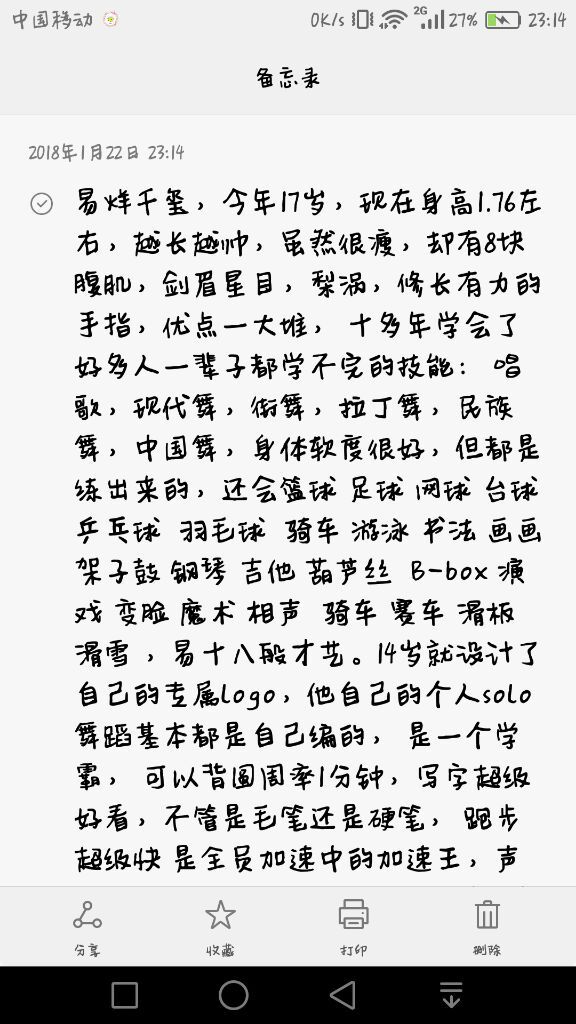 中国移动 0K/s 2G 27% 23:14
备忘录
2018年1月22日 23:14
易烊千玺，今年17岁，现在身高1.76左
右，越长越帅，虽然很瘦，却有8块
腹肌，剑眉星目，梨涡，修长有力的
手指，优点一大堆， 十多年学会了
好多人一辈子都学不完的技能： 唱
歌，现代舞，街舞，拉丁舞，民族
舞，中国舞，身体软度很好，但都是
练出来的，还会篮球 足球 网球 台球
乒乓球 羽毛球 骑车 游泳 书法 画画
架子鼓 钢琴 吉他 葫芦丝 B-box 演
戏 变脸 魔术 相声 骑车 赛车 滑板
滑雪 ，易十八般才艺。14岁就设计了
自己的专属logo，他自己的个人solo
舞蹈基本都是自己编的， 是一个学
霸， 可以背圆周率1分钟，写字超级
好看，不管是毛笔还是硬笔， 跑步
超级快 是全员加速中的加速王，声
分享 收藏 打印 删除